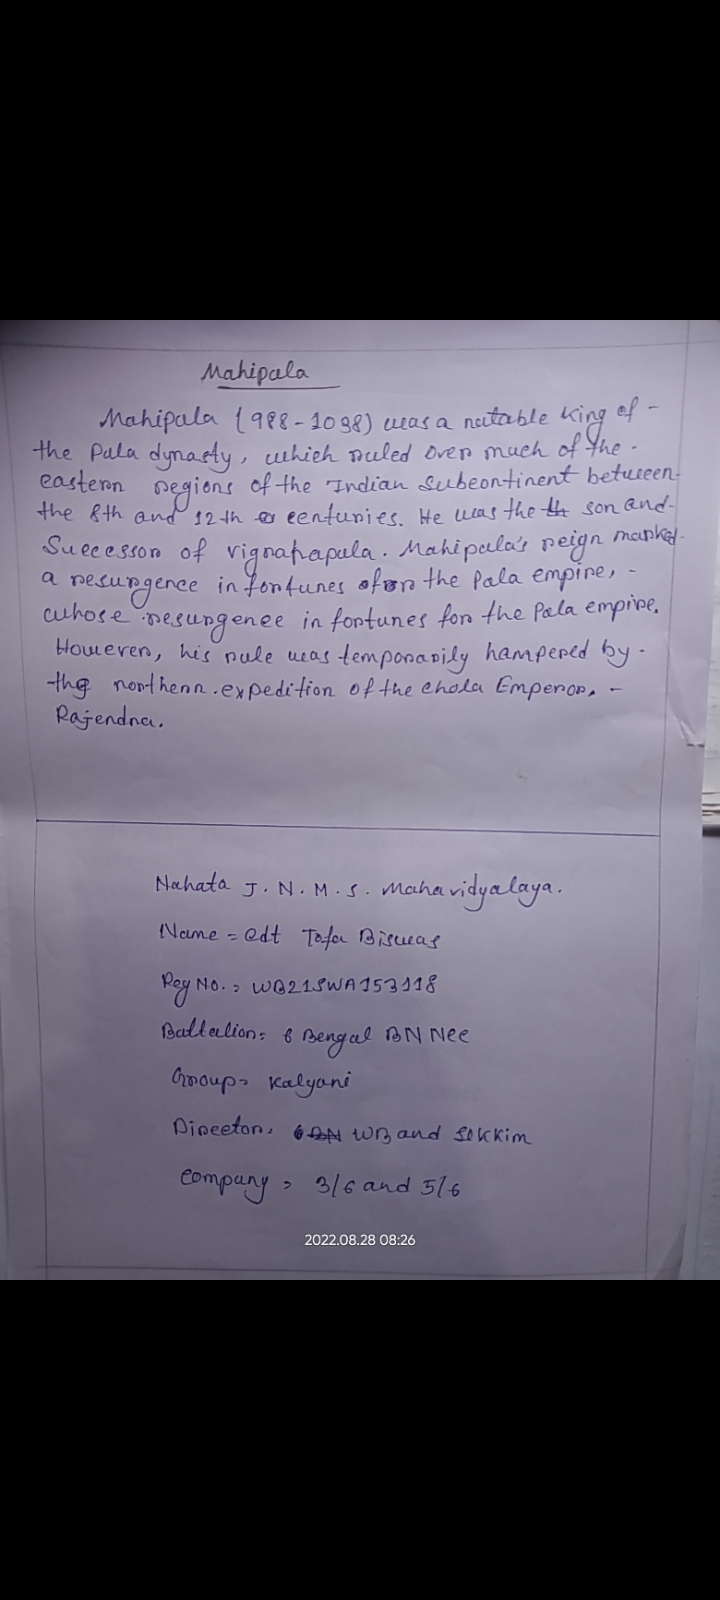 Mahipala
Mahipala (988-1038) was a notable king of -
the Pala dynasty, which ruled over much of the -
eastern regions of the Indian Subcontinent between -
the 8th and 12th centuries. He was the son and -
Successor of vigrahapala. Mahipala's reign marked -
a resurgence in fortunes for the Pala empire, -
whose resurgence in fortunes for the Pala empire.
However, his rule was temporarily hampered by -
the northern expedition of the Chola Emperor, -
Rajendra.
Nahata J. N. M. S. Mahavidyalaya.
Name = Cdt Tofa Biswas
Reg No. = WB21SWA153118
Battalion = 6 Bengal BN Ncc
Group = Kalyani
Director = WB and Sikkim
Company = 3/6 and 5/6
2022.08.28 08:26